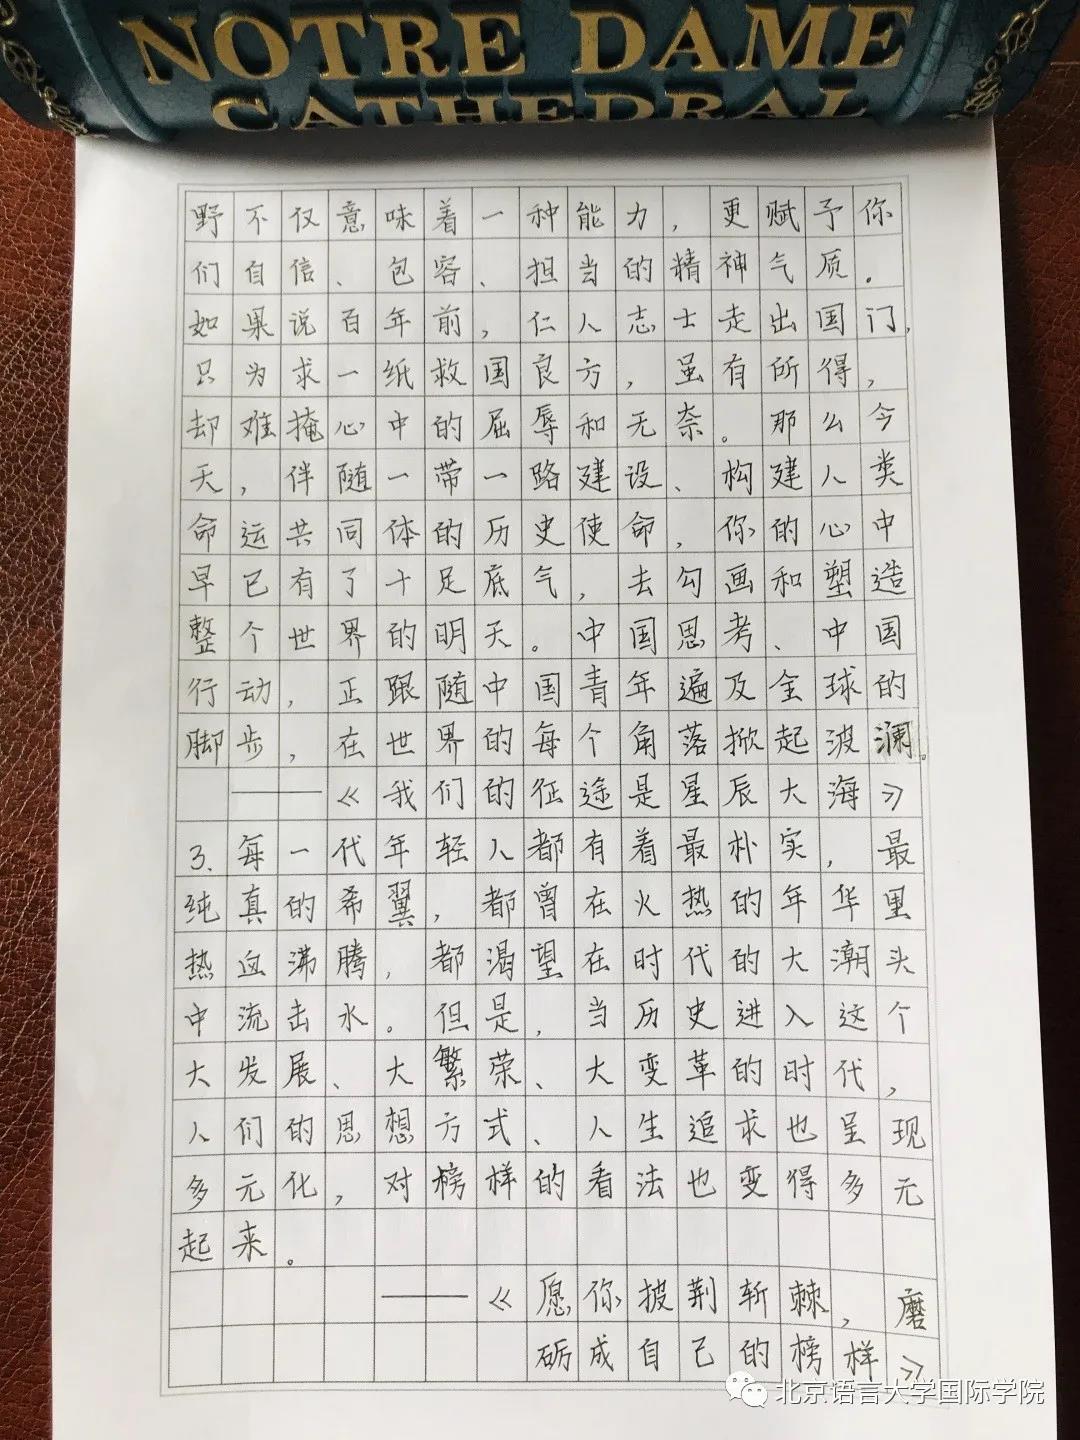 NOTRE DAME
CATHEDRAL
野不仅意味着一种能力，更赋予你
们自信、包容、担当的精神气质。
如果说百年前，仁人志士走出国门，
只为求一纸救国良方，虽有所得，
却难掩心中的屈辱和无奈。那么今
天，伴随一带一路建设、构建人类
命运共同体的历史使命，你的心中
早已有了十足底气，去勾画和塑造
整个世界的明天。中国思考、中国
行动，正跟随中国青年遍及全球的
脚步，在世界的每个角落掀起波澜。
——《我们的征途是星辰大海》
3.每一代年轻人都有着最朴实，最
纯真的希翼，都曾在火热的年华里
热血沸腾，都渴望在时代的大潮头
中流击水。但是，当历史进入这个
大发展、大繁荣、大变革的时代，
人们的思想方式、人生追求也呈现
多元化，对榜样的看法也变得多元
起来。
——《愿你披荆斩棘，磨
砺成自己的榜样》
北京语言大学国际学院